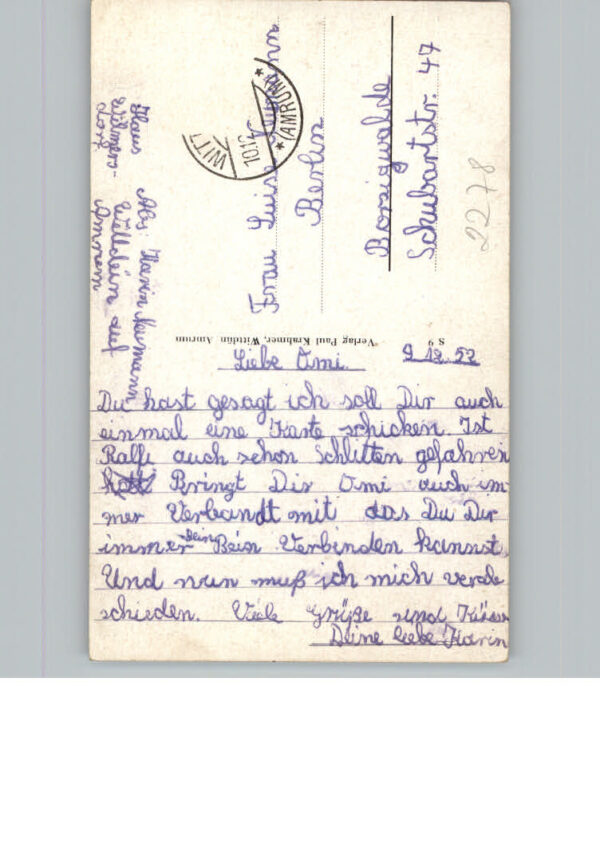 Liebe Omi. 9.12.52
Du hast gesagt ich soll Dir auch
einmal eine Karte schicken. Ist
Ralfi auch schon Schlitten gefahren
Bringt Dir Omi auch im-
mer Verbandt mit das Du Dir
immer Dein Bein Verbinden kannst.
Und nun muß ich mich verab
schieden. Viele Grüße und Küsse
Deine liebe Karin
Abs: Karin Neumann
Wittdün auf
Amrum
Haus
Frau Luise Neumann
Berlin
Borsigwalde
Schubartstr. 47
2278
WITT
10.12
* (AMRUM) *
Verlag Paul Krahmer, Wittdün Amrum
S 9